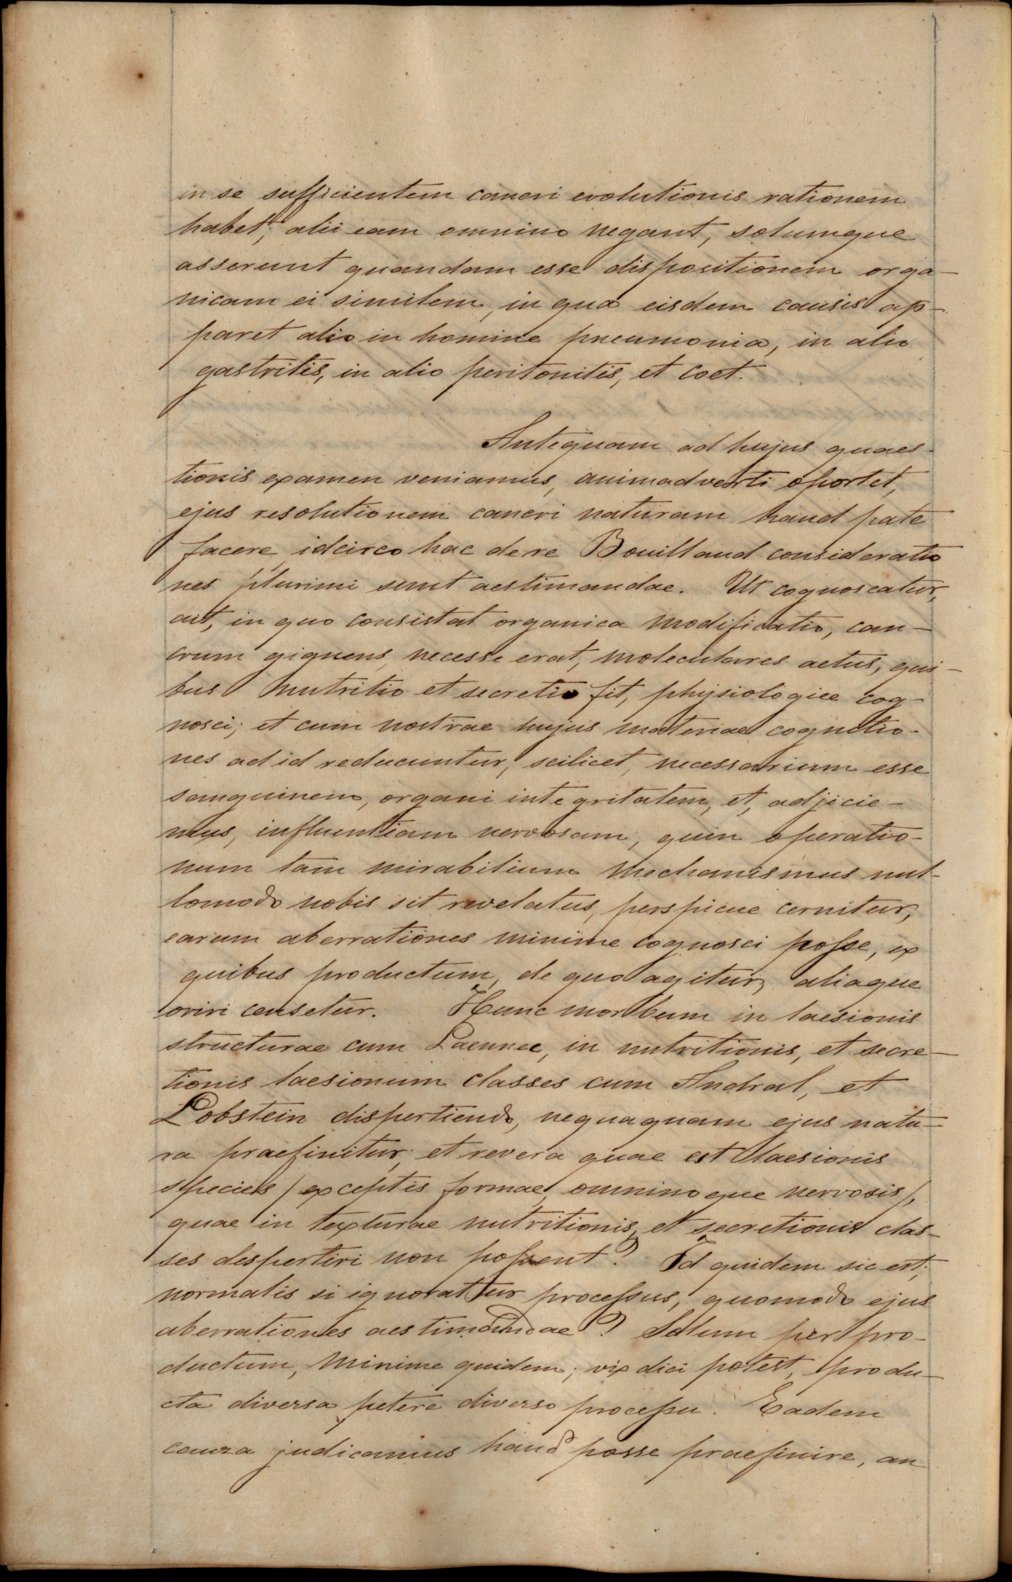 in se sufficientem cancri evolutionis rationem
habet; alii eam omnino negant, solumque
asserunt quandam esse dispositionem orga-
nicam ei similem, in qua eisdem causis ap-
paret alio in homine pneumonia, in alio
gastritis, in alio peritonitis, et coet.
Antequam ad hujus quaes-
tionis examen veniamus, animadverti oportet,
ejus resolutionem cancri naturam haud pate
facere, idcirco hac de re Bouilland consideratio
nes plurimi sunt aestimandae. Ut cognoscatur,
aut, in quo consistat organica modificatio, can-
crum gignens, necesse erat, moleculares actus, qui-
bus nutritio et secretio fit, physiologice cog-
nosci; et cum nostrae hujus materiae cognitio-
nes ad id reducuntur, scilicet, necessarium esse
sanguinem, organi integritatem, et, adjicie-
mus, influentiam nervosam, quin operatio-
num tam mirabilium mechanismus nul-
lomodo nobis sit revelatus, perspicue cernitur,
earum aberrationes minime cognosci posse, ex
quibus productum, de quo agitur, aliaque
oriri censetur. Hunc morbum in laesionis
structurae cum Laennec, in nutritionis, et secre-
tionis laesionum classes cum Andral, et
Lobstein dispertiendo, nequaquam ejus natu-
ra praefinitur; et revera quae est laesionis
species / exceptis formae, omninoque nervosis /,
quae in texturae nutritionis, et secretionis clas-
ses dispertiri non possent? Id quidem sic est;
normalis si ignoratur processus, quomodo ejus
aberrationes aestimandae? Solum per pro-
ductum, minime quidem; vix dici potest, produ-
cta diversa petere diverso processu. Eadem
causa judicamus haud posse praefinire, an